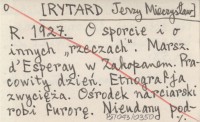 o [RYTARD Jerzy Mieczysław]
R. 1927. O sporcie i o
innych „rzeczach". Marsz.
d'Esperay w Zakopanem. Pra-
cowity dzień. Etnografja
zwycięża. Ośrodek narciarski
robi furorę. Nieudany pod-